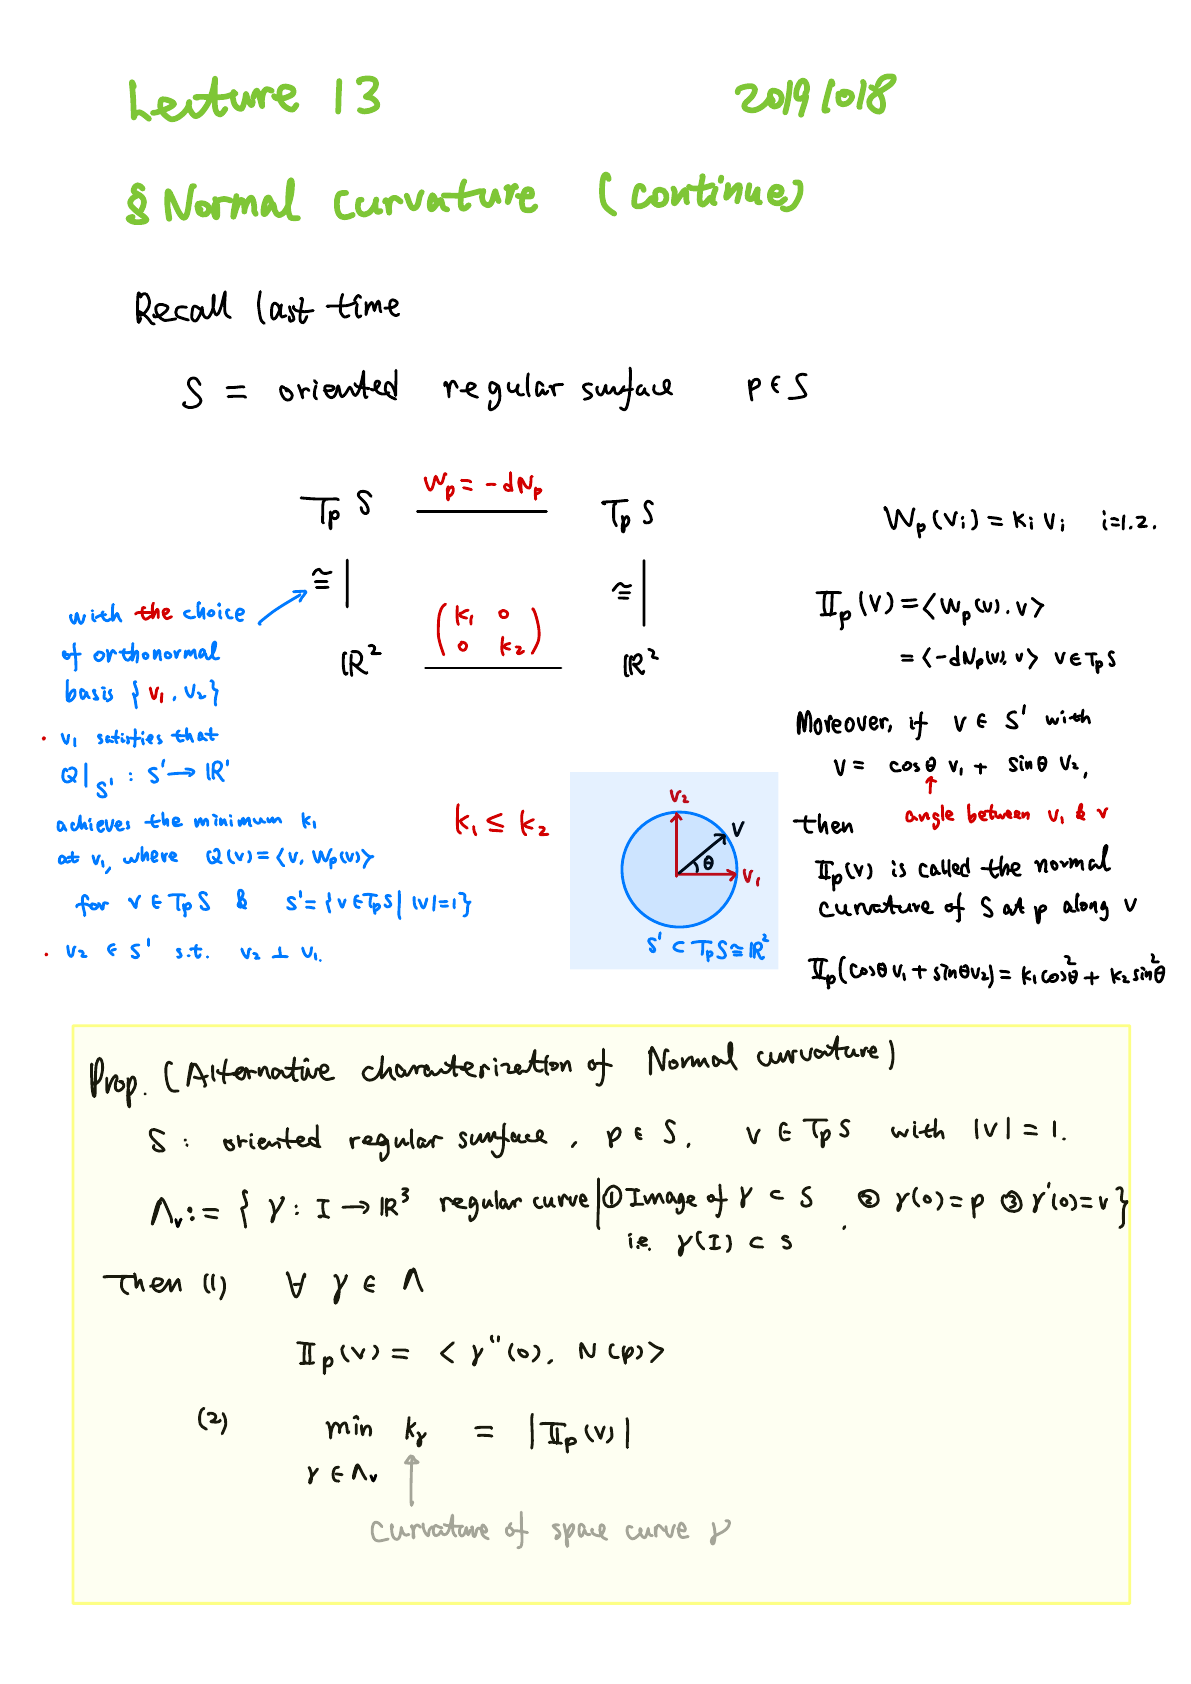 Lecture 13 20191018
§ Normal curvature (continue)
Recall last time
S = oriented regular surface p ∈ S
T_p S W_p = -dN_p T_p S
≅ | ≅ |
ℝ² ( k₁ 0 ; 0 k₂ ) ℝ²
with the choice
of orthonormal
basis { v₁, v₂ }
· v₁ satisfies that
Q|_{S¹} : S¹ → ℝ¹
achieves the minimum k₁
at v₁, where Q(v) = <v, W_p(v)>
for v ∈ T_pS & S¹ = {v ∈ T_pS | |v| = 1}
· v₂ ∈ S¹ s.t. v₂ ⊥ v₁.
k₁ ≤ k₂
v₂
v
θ
v₁
S¹ ⊂ T_pS ≅ ℝ²
W_p(v_i) = k_i v_i i=1.2.
II_p(v) = <W_p(v), v>
= <-dN_p(v), v> v ∈ T_pS
Moreover, if v ∈ S¹ with
v = cosθ v₁ + sinθ v₂,
↑
angle between v₁ & v
then
II_p(v) is called the normal
curvature of S at p along v
II_p(cosθ v₁ + sinθ v₂) = k₁cos²θ + k₂sin²θ
Prop. (Alternative characterization of Normal curvature)
S : oriented regular surface, p ∈ S, v ∈ T_pS with |v| = 1.
Λ_v := { γ : I → ℝ³ regular curve | ① Image of γ ⊂ S , ② γ(0) = p ③ γ'(0) = v }
i.e. γ(I) ⊂ S
Then (1) ∀ γ ∈ Λ
II_p(v) = < γ''(0), N(p) >
(2) min k_γ = |II_p(v)|
γ ∈ Λ_v ↑
curvature of space curve γ